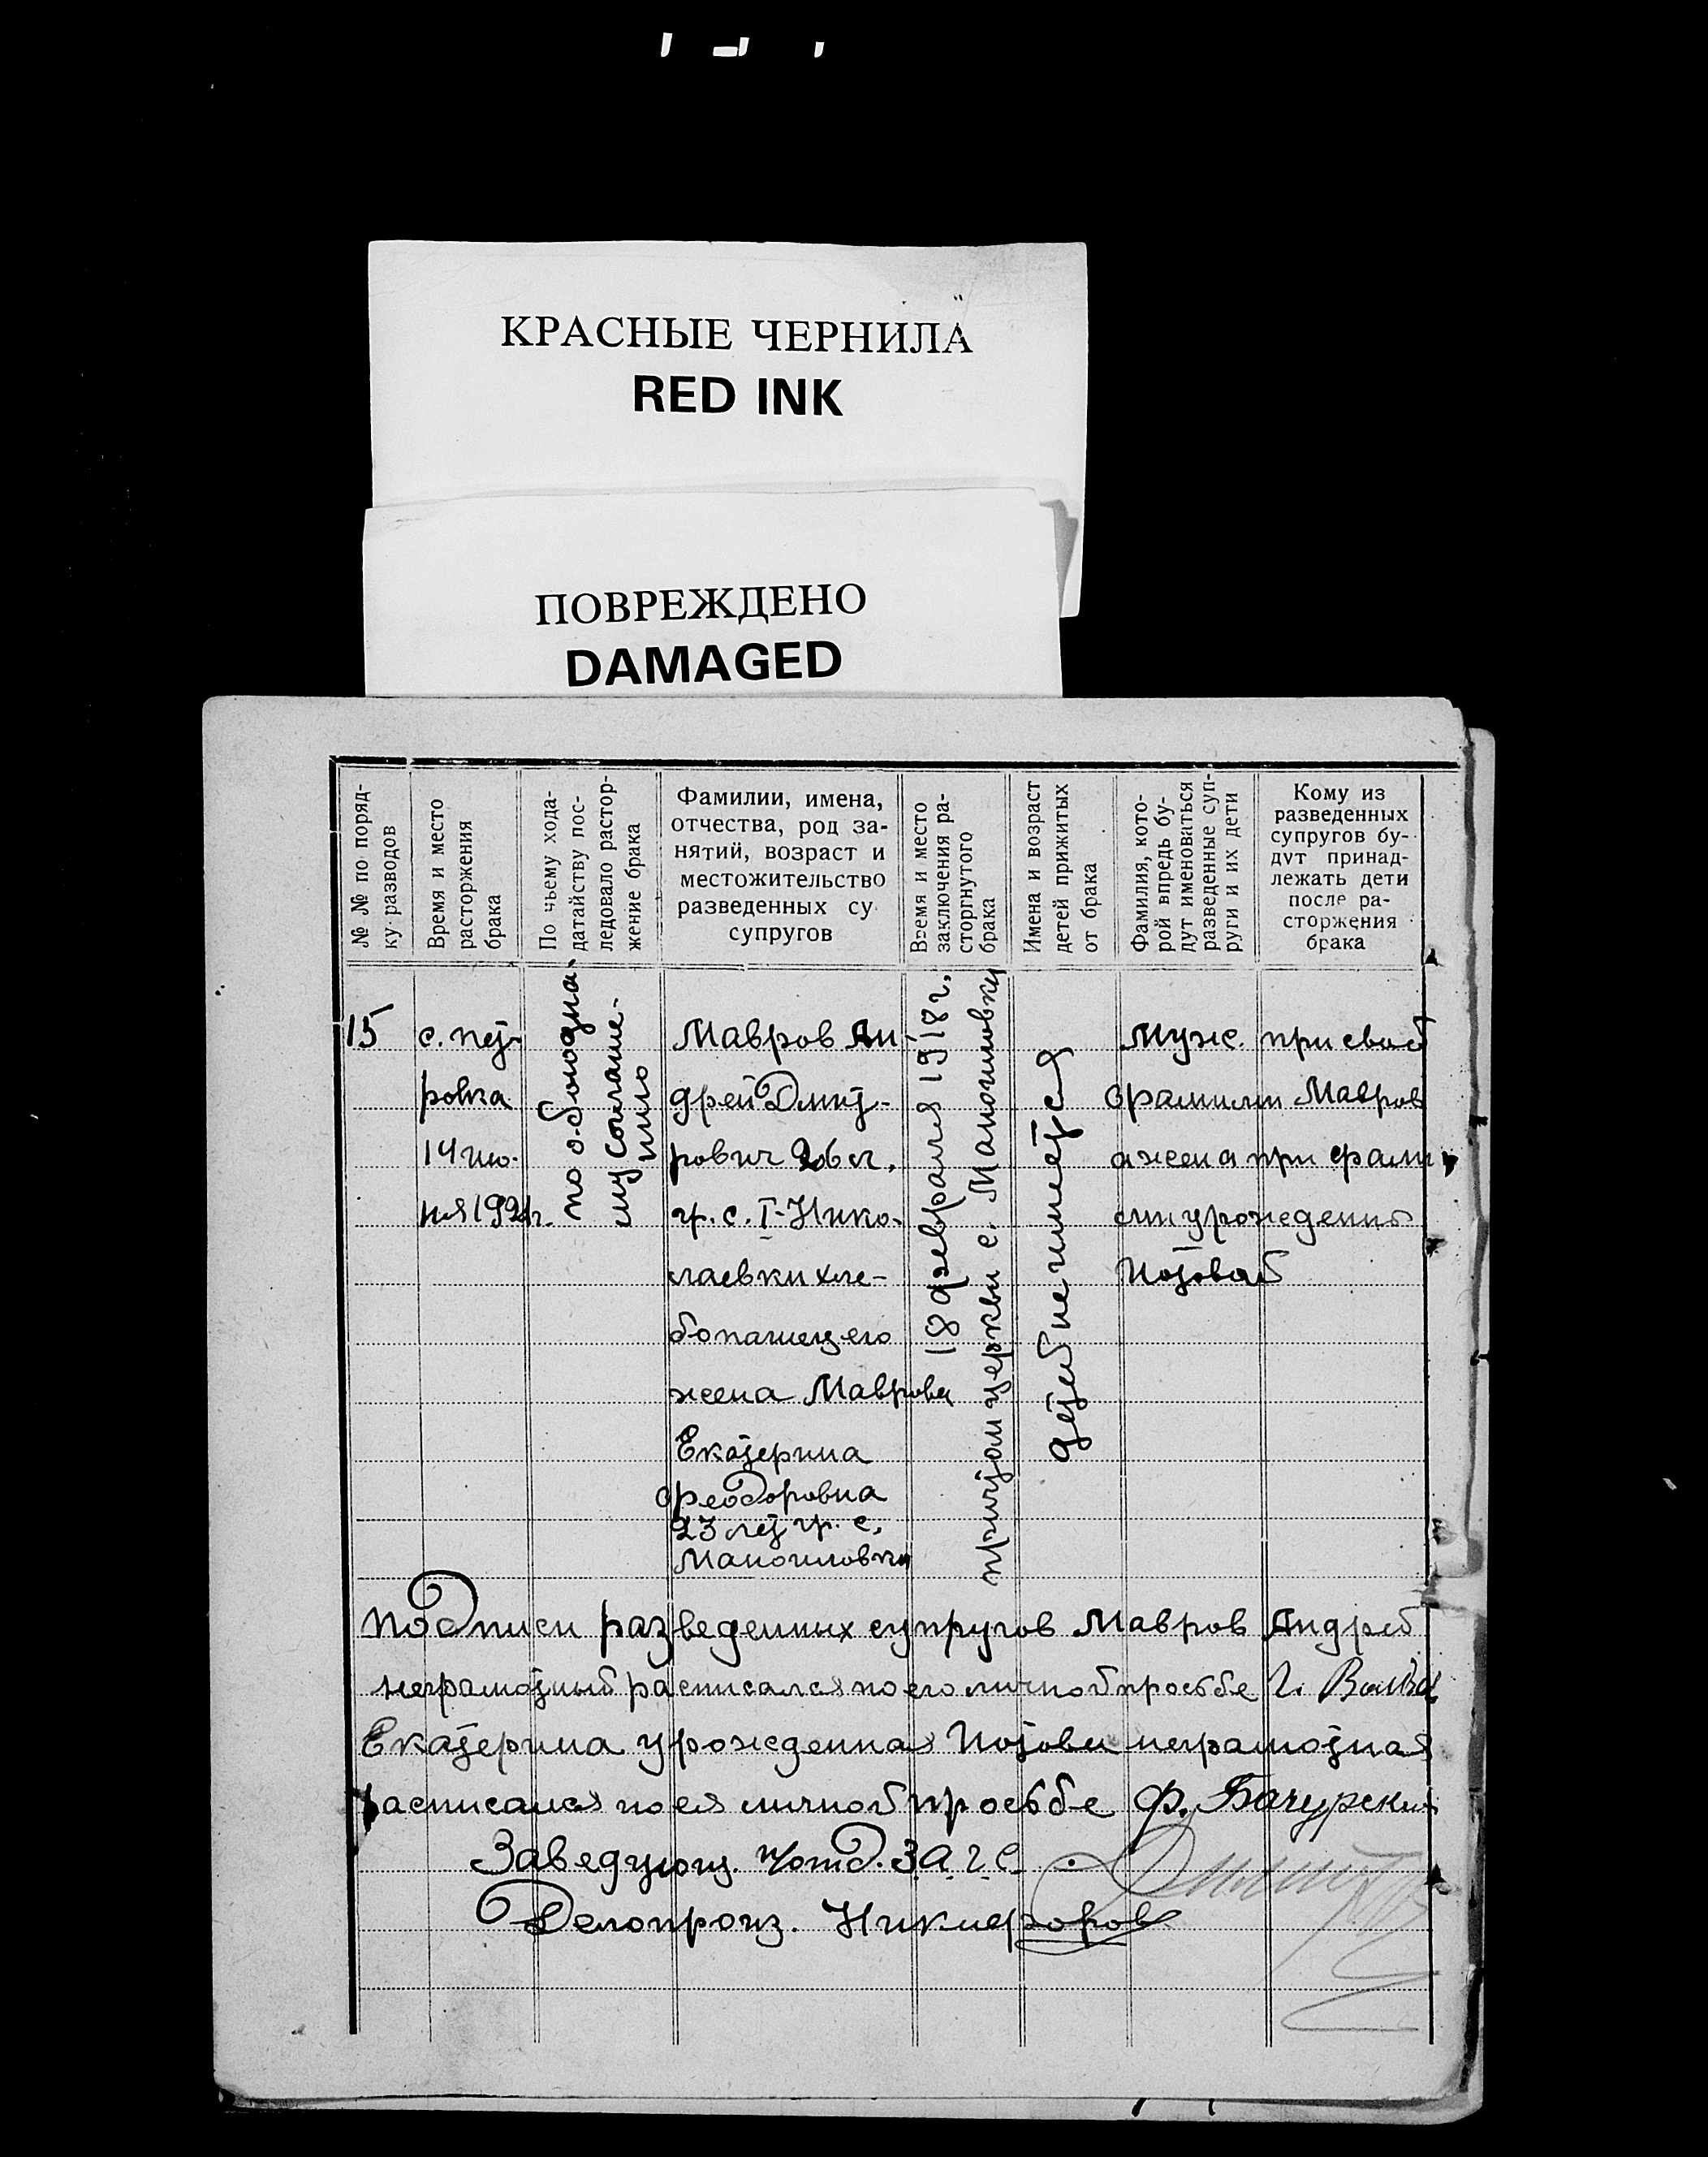 КРАСНЫЕ ЧЕРНИЛА
RED INK
ПОВРЕЖДЕНО
DAMAGED
№ № по поряд-
ку разводов
Время и место
расторжения
брака
По чьему хода-
датайству пос-
ледовало растор-
жение брака
Фамилии, имена,
отчества, род за-
нятий, возраст и
местожительство
разведенных су
супругов
Время и место
заключения ра-
сторгнутого
брака
Имена и возраст
детей прижитых
от брака
Фамилия, кото-
рой впредь бу-
дут именоваться
разведенные суп-
руги и их дети
Кому из
разведенных
супругов бу-
дут принад-
лежать дети
после ра-
сторжения
брака
15
с. Пет-
ровка
14 ию-
ня 1921г.
по обоюдна-
му соглаше-
нию
Мавров Ан-
дрей Дмит-
рович 26 л.
гр. с. I-Нико-
лаевки хле-
бопашец его
жена Маврова
Екатерина
Феодоровна
23 лет гр. с.
Маногиловки
18 февраля 1918 г.
причтом церкви с. Маногиловки
детей не имеется
муж. при своей
фамилии Мавров
а жена при фами
лии урожденной
Потовой
Подписи разведенных супругов Мавров Андрей
неграмотный расписался по его личной просьбе
Екатерина урожденная Потова неграмотная
расписался по ея личной просьбе Ф. Бачурский
Заведующ. Потд. ЗАГС
Делопроиз. Никифоров